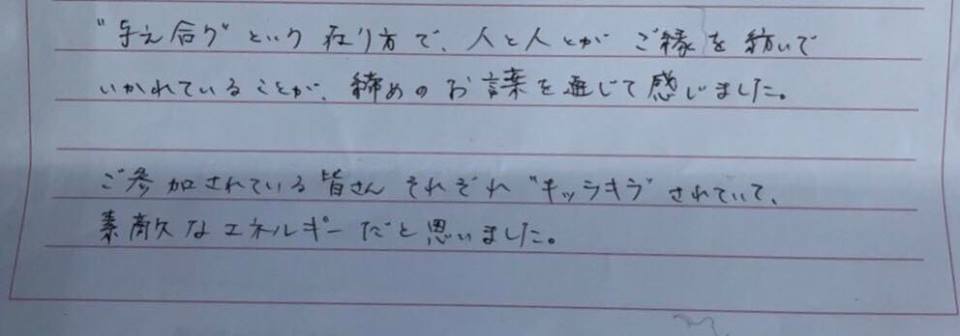 "与え合う"という在り方で、人と人とがご縁を紡いで
いかれていることが、締めのお言葉を通じて感じました。
ご参加されている皆さんそれぞれ"キッラキラ"されていて、
素敵なエネルギーだと思いました。